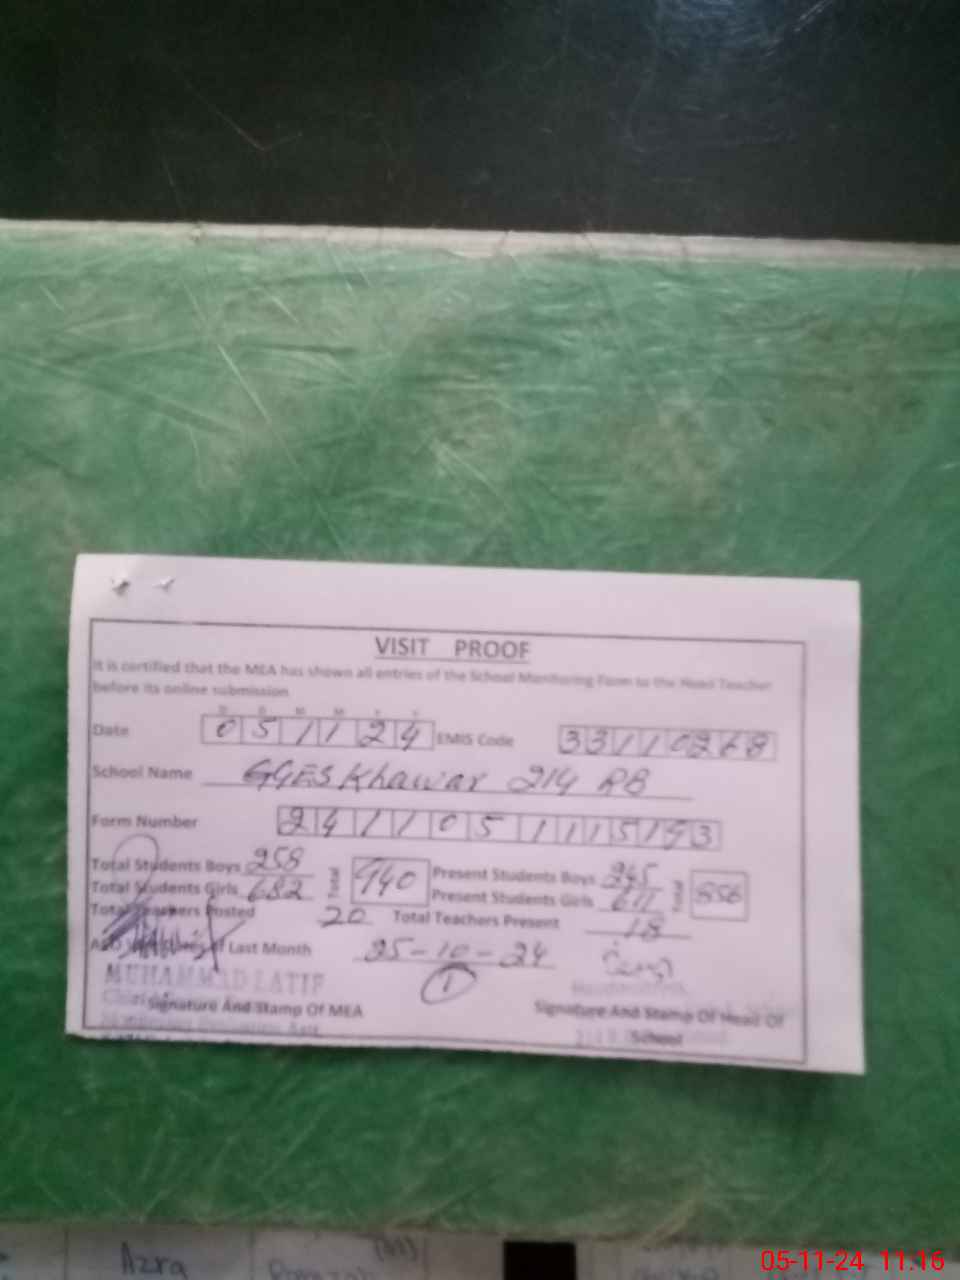 VISIT PROOF
It is certified that the MEA has shown all entries of the School Monitoring Form to the Head Teacher
before its online submission
D D M M Y Y
Date 0 5 1 1 2 4 EMIS Code 3 3 1 1 0 2 6 8
School Name GGES Khawar 214 RB
Form Number 2 4 1 1 0 5 1 1 1 5 1 9 3
Total Students Boys 258 Total 940 Present Students Boys 245 Total 856
Total Students Girls 682 Present Students Girls 611
Total Teachers Posted 20 Total Teachers Present 18
Last Month 25-10-24
1
MUHAMMAD LATIF
Signature And Stamp Of MEA Signature And Stamp Of Head Of
School
Azra
05-11-24 11.16